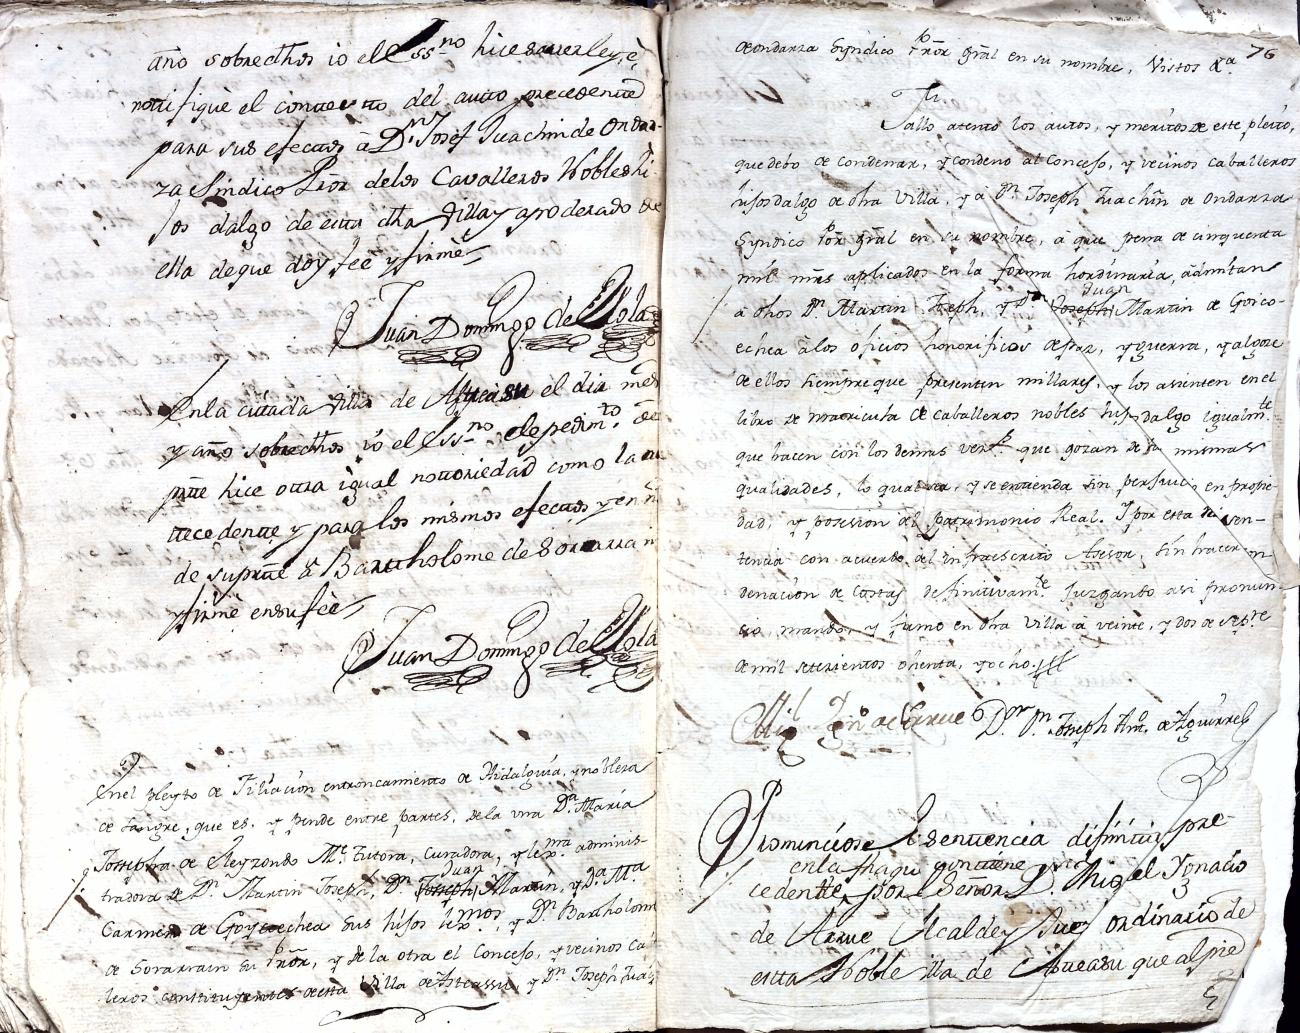 año sobredhos io el Essno hice saver ley, è
notifiquè el conttextto del autto precedentte
para sus efecttos à Dn Josef Juachin de Ondar-
za Síndico Pror de los Cavalleros Nobles hi
jos dalgo de estta dha Villa y apoderado de
ella de que doy feè y firmè
Juan Domingo de Olla
En la cittada Villa de Astteasu el dia mes
y año sobredhos io el Essno de pedimto de
partte hice ottra igual nottoriedad como la an
ttecedentte y para los mismos efecttos y en
de supartte à Bartholome de Sorarrain
y firmè en su feè
Juan Domingo de Olla
En el Pleyto de Filiación entroncamiento de Hidalguia, y nobleza
de sangre, que es, y pende entre partes, de la una Da. Maria
Josepha de Eleyzondo Me. Tutora, curadora, y lexma adminis-
tradora de Dn. Martin Joseph, Dn. Juan Joseph Martin, y Da. Ma.
Carmen de Goycoechea sus hijos lexmos, y Dn. Bartholome
de Sorarrain su Pror, y de la otra el Concejo, y vecinos Cab
lleros constituyentes de esta Villa de Asteassu, y Dn. Joseph Juach
de Ondarza Syndico Pror gral en su nombre, Vistos &a. 76
Fallo atento los autos, y meritos de este pleito,
que debo de condenar, y condeno al Concejo, y vecinos caballeros
hijosdalgo de dha Villa, y à Dn. Joseph Juachin de Ondarza
Syndico Pror gral en su nombre, à que pena de cinquenta
mil mrs aplicados en la forma hordinaria, admitan
à dhos Dn. Martin Joseph, y Dn. Juan Joseph Martin de Goico-
echea à los oficios honorificos de paz, y guerra, y algoze
de ellos siempre que presenten millares, y los asienten en el
libro de matricula de caballeros nobles hijosdalgo igualmte.
que hacen con los demas vezs. que gozan de las mismas
qualidades, lo qual sea, y se entienda sin perjuicio en propie-
dad, y posesion del Patrimonio Real. Y por esta mi sen-
tencia con acuerdo del infraescrito Asesor, sin hacer con
denacion de costas definitivamte. Juzgando asi pronun-
cio, mando, y firmo en dha Villa à veinte, y dos de sepre
de mil setecientos ochenta, y ocho.
Migl Ignº de Arrue Dor. Dn. Joseph Antº. de Aguirre
Pronunciose la senttencia difinitiva pre-
en la fha que conttiene
cedentte, por el Señor Dn. Miguel Ygnacio
de Arrue Alcalde y Juez ordinario de
estta Noble Villa de Asteasu que al pie